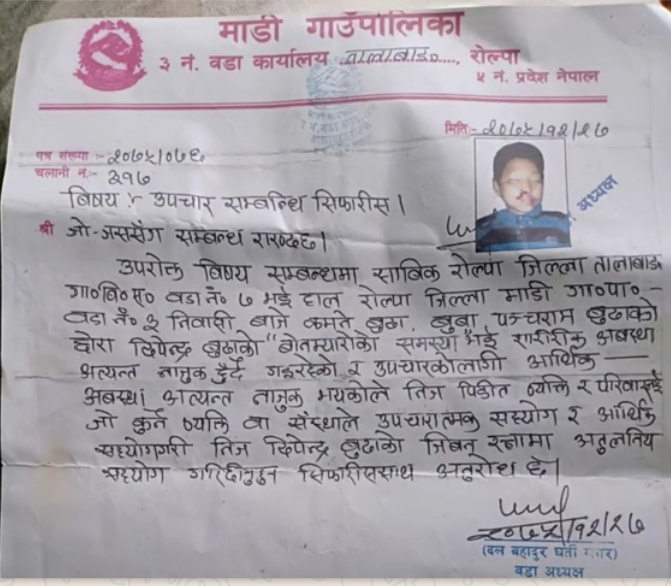 माडी गाउँपालिका
३ नं. वडा कार्यालय तालाबाङ...., रोल्पा
५ नं. प्रदेश नेपाल
मिति:- २०७५/१२/२७
पत्र संख्या :- २०७५/०७६
चलानी नं.:- ३१७
अध्यक्ष
बिषय :- उपचार सम्बन्धि सिफारीस।
श्री जो-जससंग सम्बन्ध राख्दछ।
उपरोक्त बिषय सम्बन्धमा साबिक रोल्पा जिल्ला तालाबाङ
गा०बि०स० वडा नं० ७ भई हाल रोल्पा जिल्ला माडी गा०पा० -
वडा नं० ३ निवासी, बाजे कमाने बुढा, बुबा पञ्चराम बुढाको
छोरा दिपेन्द्र बुढाको "बोनम्यारोको समस्या" भई शारीरिक अबस्था
अत्यन्त नाजुक हुँदै गइरहेको र उपचारकोलागी आर्थिक —
अबस्था अत्यन्त नाजुक भयकोले निज पिडीत व्यक्ति र परिवारलाई
जो कुनै व्यक्ति वा संस्थाले उपचारात्मक सहयोग र आर्थिक
सहयोगगरी निज दिपेन्द्र बुढाको जिबन रक्षामा अतुलनिय
सहयोग गरिदिनुहुन सिफारीससाथ अनुरोध छ।
२०७५/१२/२७
(दल बहादुर घर्ती मगर)
वडा अध्यक्ष